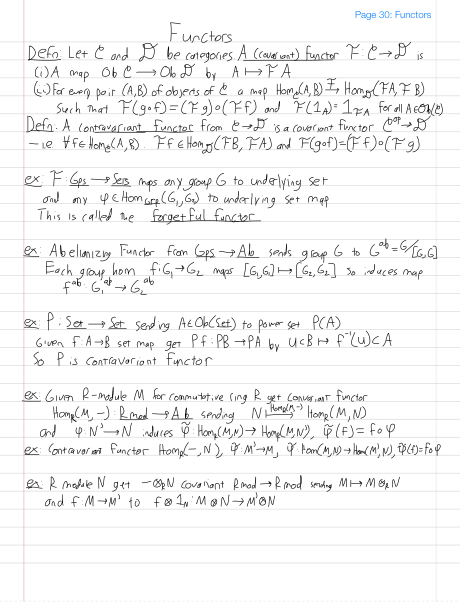 Page 30: Functors
Functors
Defn: Let C and D be categories. A (covariant) functor F: C→D is
(i) A map Ob C → Ob D by A ↦ FA
(ii) For every pair (A,B) of objects of C a map Hom_C(A,B) →^F Hom_D(FA,FB)
such that F(g∘f)=(Fg)∘(Ff) and F(1_A)=1_FA for all A∈Ob(C)
Defn: A contravariant functor from C→D is a covariant functor C^op→D
- ie ∀f∈Hom_C(A,B). Ff∈Hom_D(FB,FA) and F(g∘f)=(Ff)∘(Fg)
ex: F: Gps → Sets maps any group G to underlying set
and any φ∈Hom_Grp(G_1,G_2) to underlying set map
This is called the forgetful functor
ex: Abelianizing Functor from Gps → Ab sends group G to G^ab = G/[G,G]
Each group hom f: G_1→G_2 maps [G_1,G_1]↦[G_2,G_2] so induces map
f^ab: G_1^ab → G_2^ab
ex: P: Set → Set sending A∈Ob(Set) to power set P(A)
Given f: A→B set map get Pf: PB→PA by U⊂B ↦ f^-1(U)⊂A
So P is contravariant functor
ex: Given R-module M for commutative ring R get covariant functor
Hom_R(M,-): Rmod → Ab sending N ↦^Hom_R(M,-) Hom_R(M,N)
and φ: N'→N induces φ̃: Hom_R(M,N)→Hom_R(M,N'), φ̃(f)=f∘φ
ex: Contravariant Functor Hom_R(-,N), φ: M'→M, φ̃: Hom(M,N)→Hom(M',N), φ̃(f)=f∘φ
ex: R module N get -⊗_R N covariant Rmod→Rmod sending M↦M⊗_R N
and f: M→M' to f⊗1_N: M⊗N→M'⊗N